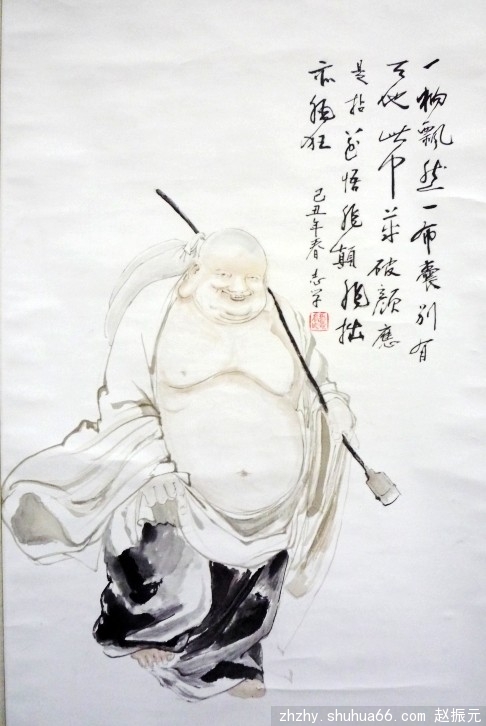 一衲飄然一布囊别有
天地此中藏破顔應
是拈花悟能顛能拙
亦能狂
己丑年春 志学
zhzhy.shuhua66.com 赵振元